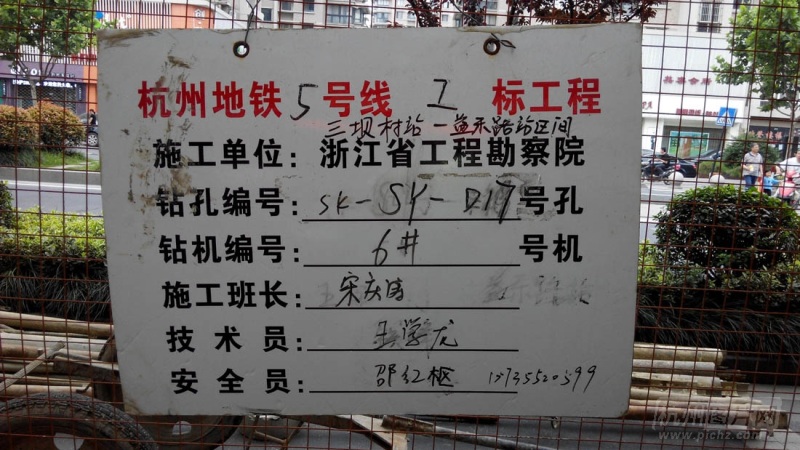 杭州地铁5号线 工 标工程
三坝村站-益乐路站区间
施工单位：浙江省工程勘察院
钻孔编号：SK-SY-D17号孔
钻机编号：6# 号机
施工班长：宋庆涛
技术员：王学龙
安全员：邵红枢 13735520599
www.pichz.com